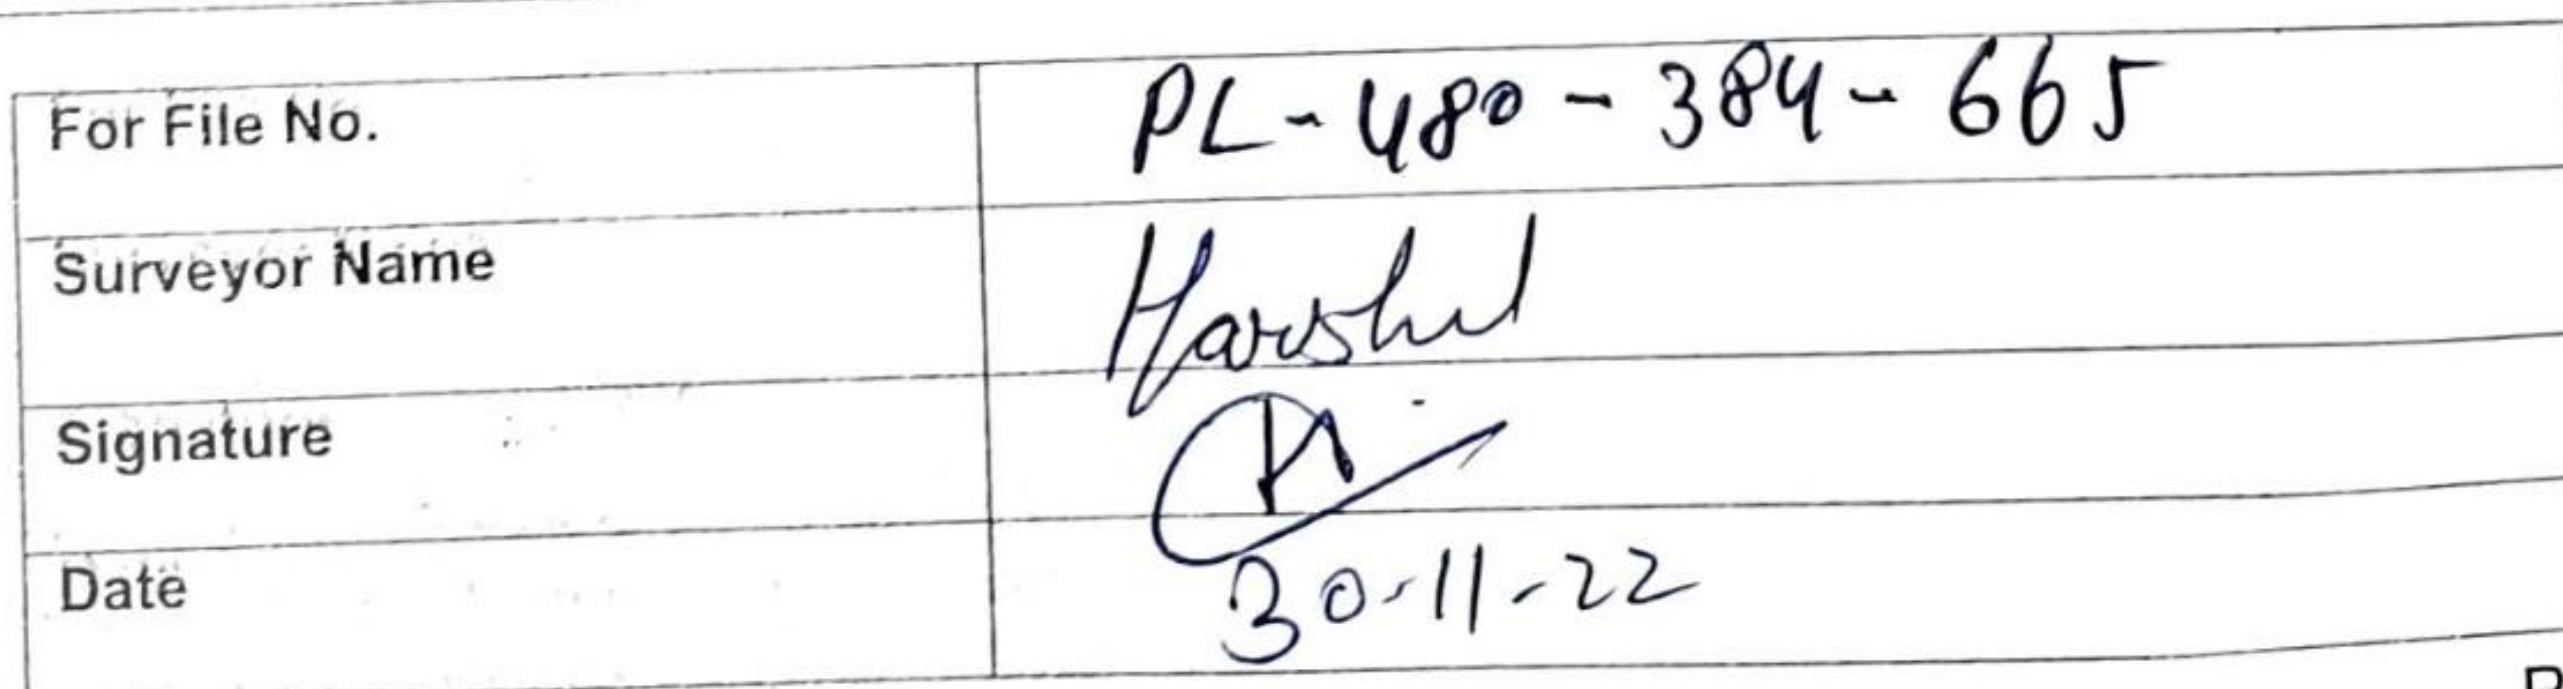 For File No. PL-480-384-665
Surveyor Name Harshul
Signature
Date 30-11-22